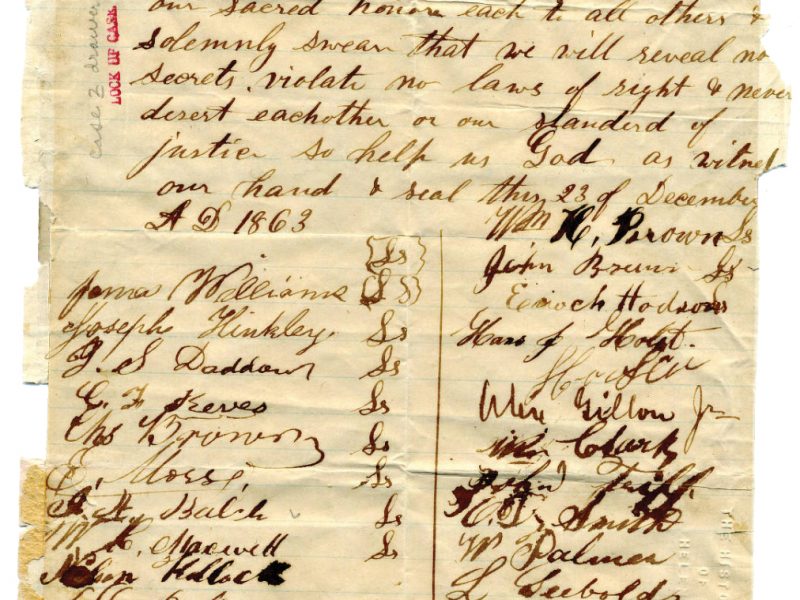 our sacred honors each to all others &
solemnly swear that we will reveal no
secrets, violate no laws of right & never
desert eachother or our standerd of
justice so help us God as witnes
our hand & seal this 23 of December
A D 1863
{Ls}
James Williams {LS}
Joseph Hinkley Ls
J. S. Daddow Ls
C. F. Keyes Ls
Chs Brown Ls
E. Morse, Ls
Balch Ls
W. H. Maxwell Ls
Nelson Kellock
Wm H. Brown Ls
John Brown Ls
Enoch Hodson
Hans J Holst.
Alex Gillon Jr
Wm Clark
John
Smith
W Palmer
L Seebold
case 2 drawer
LOCK UP CASE